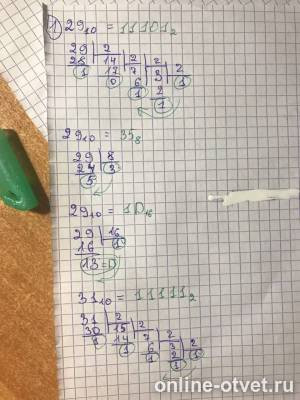 1) 29₁₀ = 11101₂
29 | 2
28 14 | 2 2
1 12 7 3 2
0 6 2 1
1 1
29₁₀ = 35₈
29 | 8
24 3
5
29₁₀ = 1D₁₆
29 | 16
16 1
13 = D
31₁₀ = 11111₂
31 | 2
30 15 | 2 2
1 14 7 3 2
1 6 2 1
1 1
online-otvet.ru